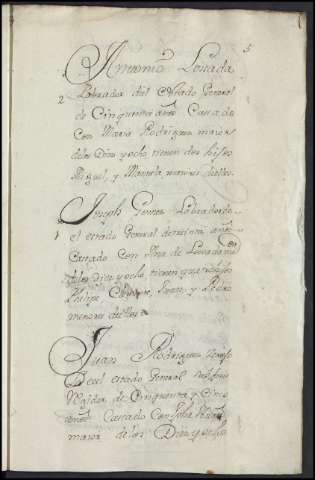 5
Antonio Losada
2 Labrador del estado General
de Cinquenta años Casado
Con Maria Rodriguez maior
de los Diez y ocho, tienen dos hijos
Miguel, y Manuela menores dellos.
Joseph Gomez Labrador de
1 el estado General de treinta años
Casado Con Ana de Losada maior
de los Diez y ocho, tienen
Phelipe, y Pedro
menores dellos
Juan Rodriguez
el estado General
de Cinquenta y Cinco
años Casado Con
maior de los Diez y ocho